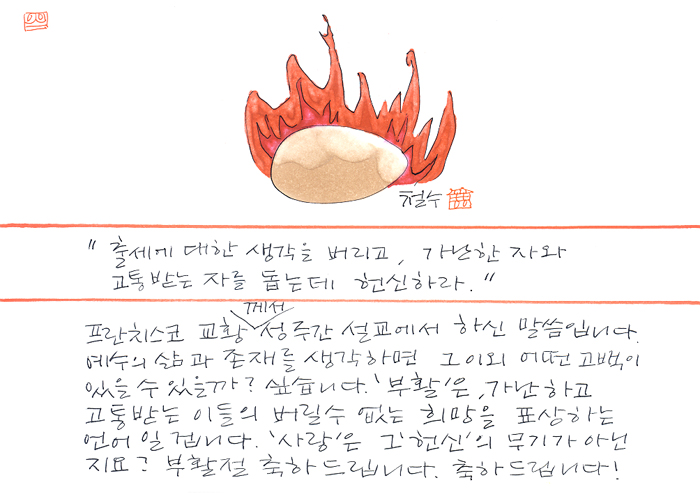 철수
" 출세에 대한 생각을 버리고, 가난한 자와
고통받는 자를 돕는데 헌신하라. "
께서
프란치스코 교황 성주간 설교에서 하신 말씀입니다.
예수의 삶과 존재를 생각하면 그 이외 어떤 고백이
있을 수 있을까? 싶습니다. '부활'은, 가난하고
고통받는 이들의 버릴수 없는 희망을 표상하는
언어 일 겁니다. '사랑'은 그 '헌신'의 무기가 아닌
지요? 부활절 축하 드립니다. 축하드립니다!